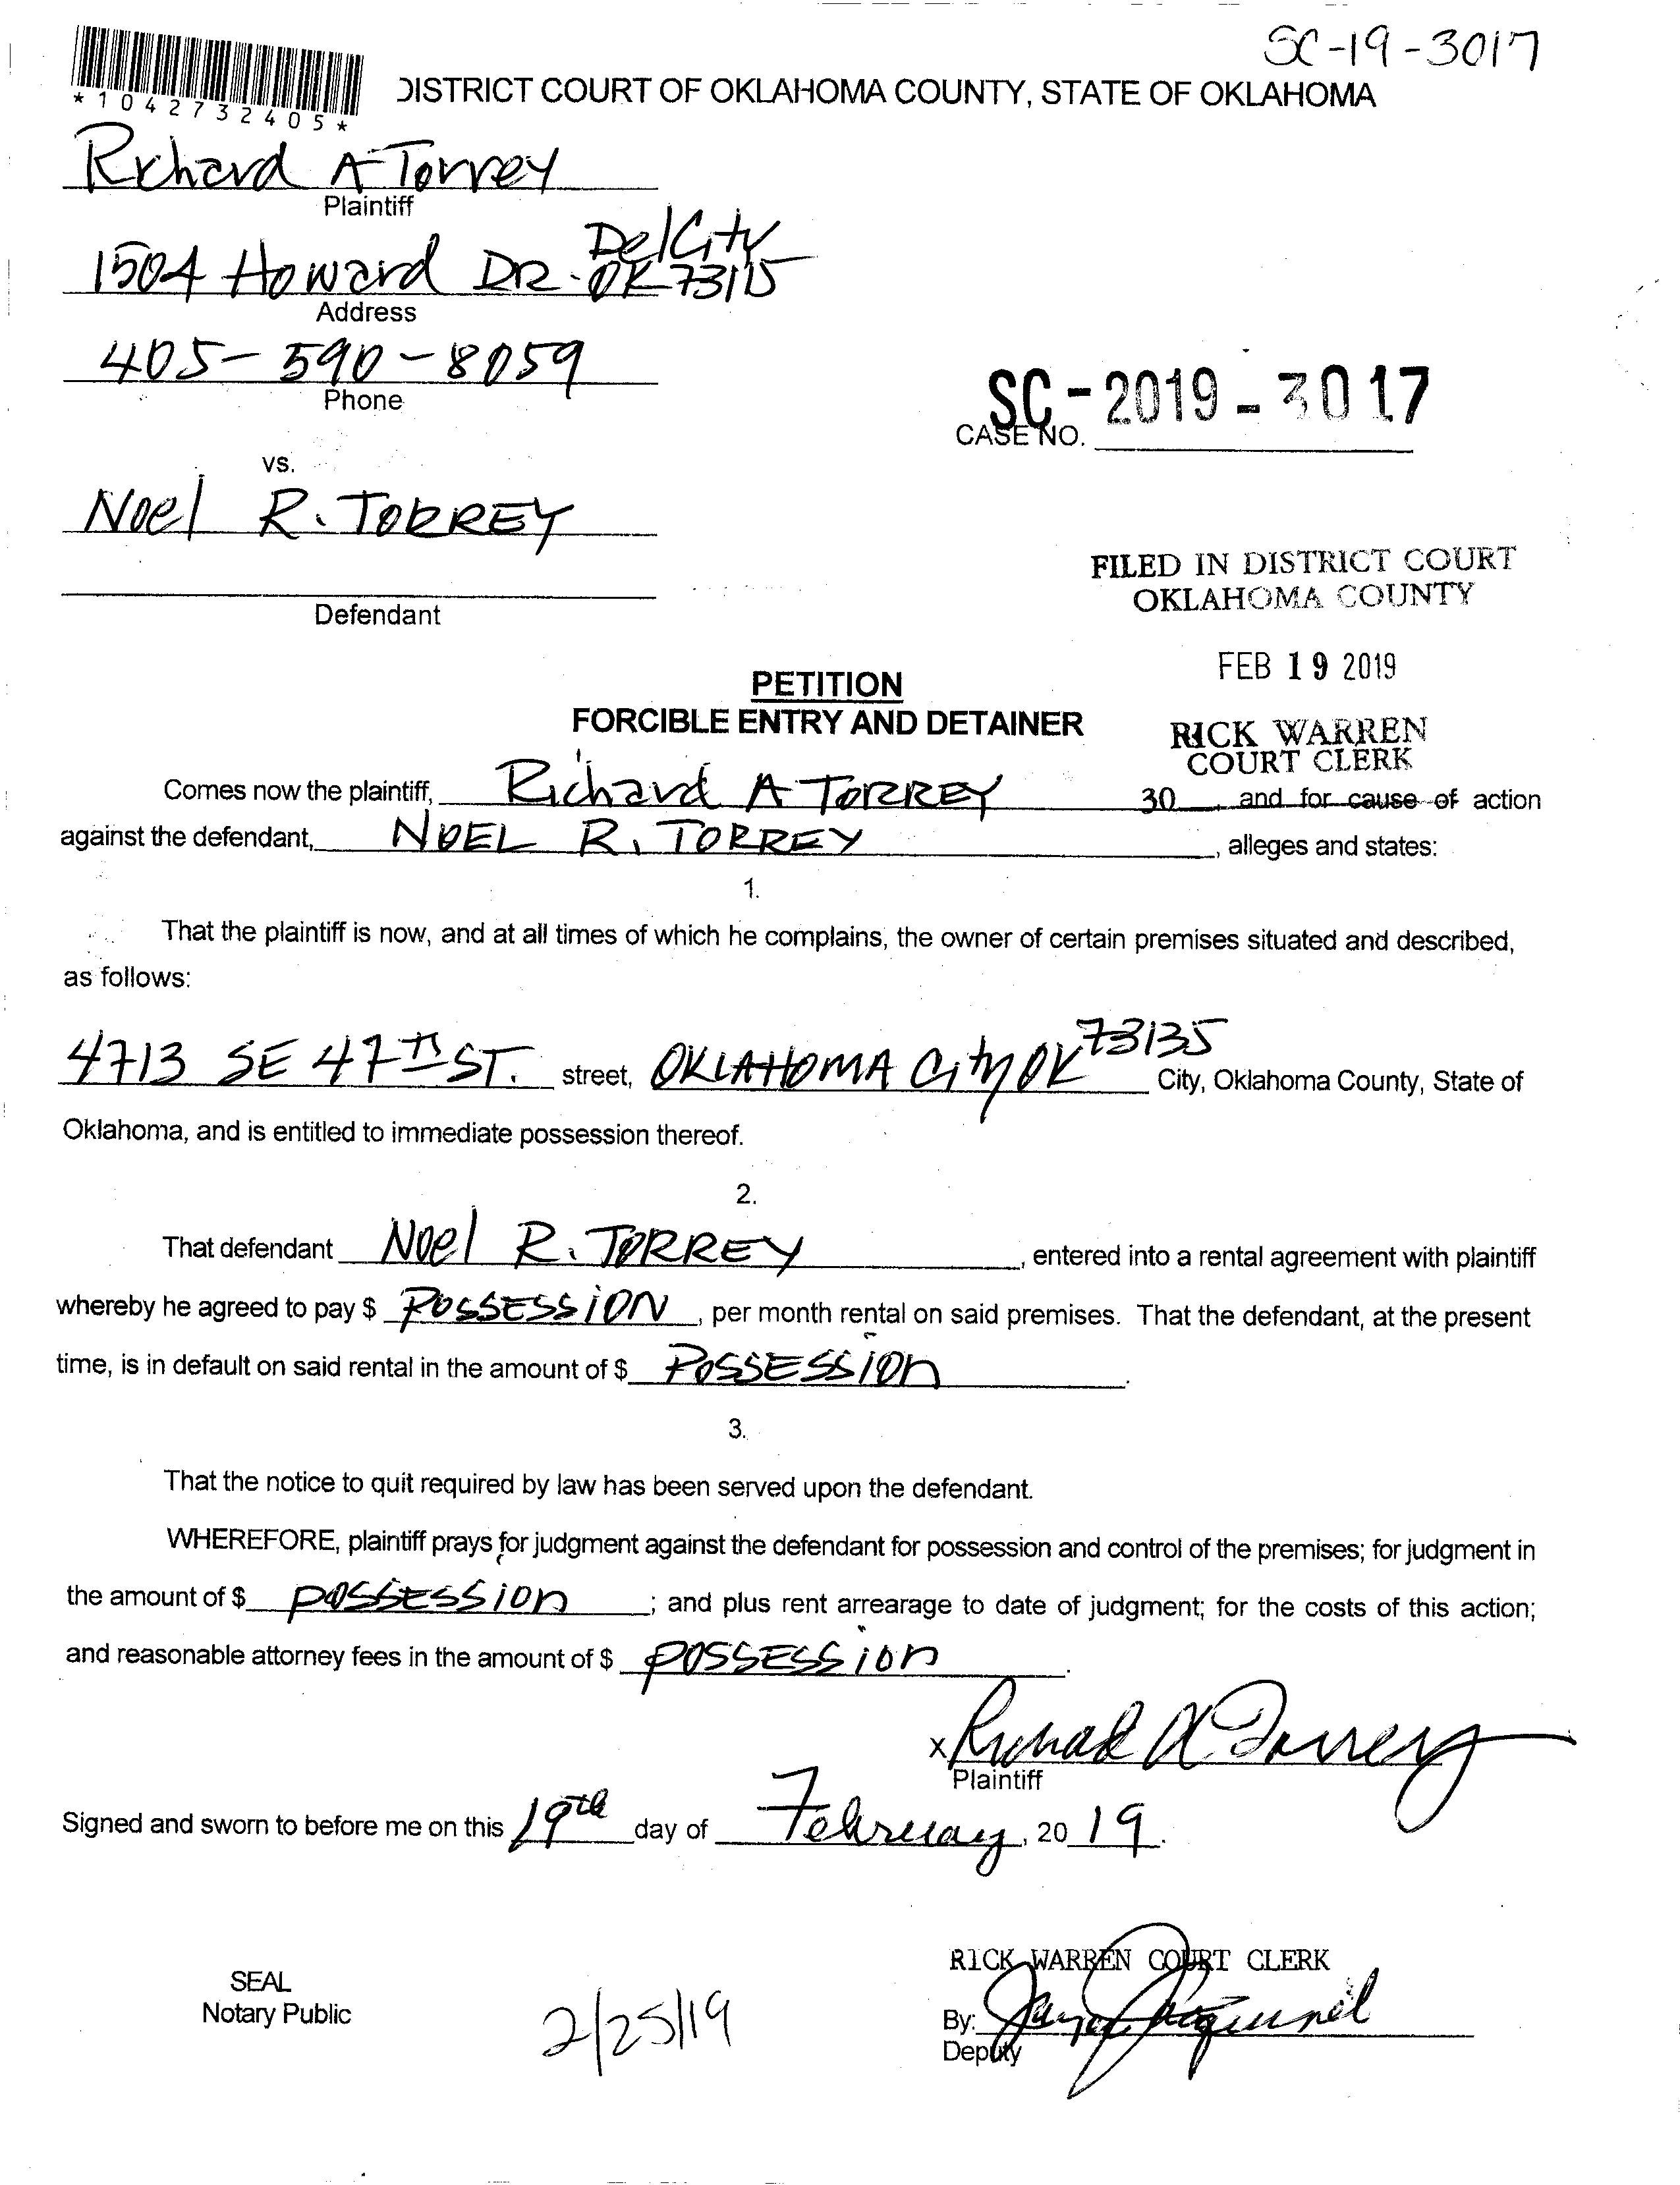 SC-19-3017
*1042732405*
DISTRICT COURT OF OKLAHOMA COUNTY, STATE OF OKLAHOMA
Richard A Torrey
Plaintiff
Del City
1504 Howard DR. OK 73115
Address
405-590-8059
Phone
SC-2019-3017
CASE NO.
vs.
Noel R. TORREY
FILED IN DISTRICT COURT
OKLAHOMA COUNTY
Defendant
FEB 19 2019
PETITION
FORCIBLE ENTRY AND DETAINER
RICK WARREN
COURT CLERK
Comes now the plaintiff, Richard A TORREY 30 , and for cause of action
against the defendant, NOEL R. TORREY , alleges and states:
1.
That the plaintiff is now, and at all times of which he complains, the owner of certain premises situated and described,
as follows:
4713 SE 47TH ST. street, OKLAHOMA City OK 73135 City, Oklahoma County, State of
Oklahoma, and is entitled to immediate possession thereof.
2.
That defendant Noel R. TORREY , entered into a rental agreement with plaintiff
whereby he agreed to pay $ POSSESSiON , per month rental on said premises. That the defendant, at the present
time, is in default on said rental in the amount of $ POSSESSion .
3.
That the notice to quit required by law has been served upon the defendant.
WHEREFORE, plaintiff prays for judgment against the defendant for possession and control of the premises; for judgment in
the amount of $ possession ; and plus rent arrearage to date of judgment; for the costs of this action;
and reasonable attorney fees in the amount of $ possession .
x Richard A Torrey
Plaintiff
Signed and sworn to before me on this 19th day of February, 20 19.
RICK WARREN COURT CLERK
SEAL
Notary Public
2/25/19
By:
Deputy